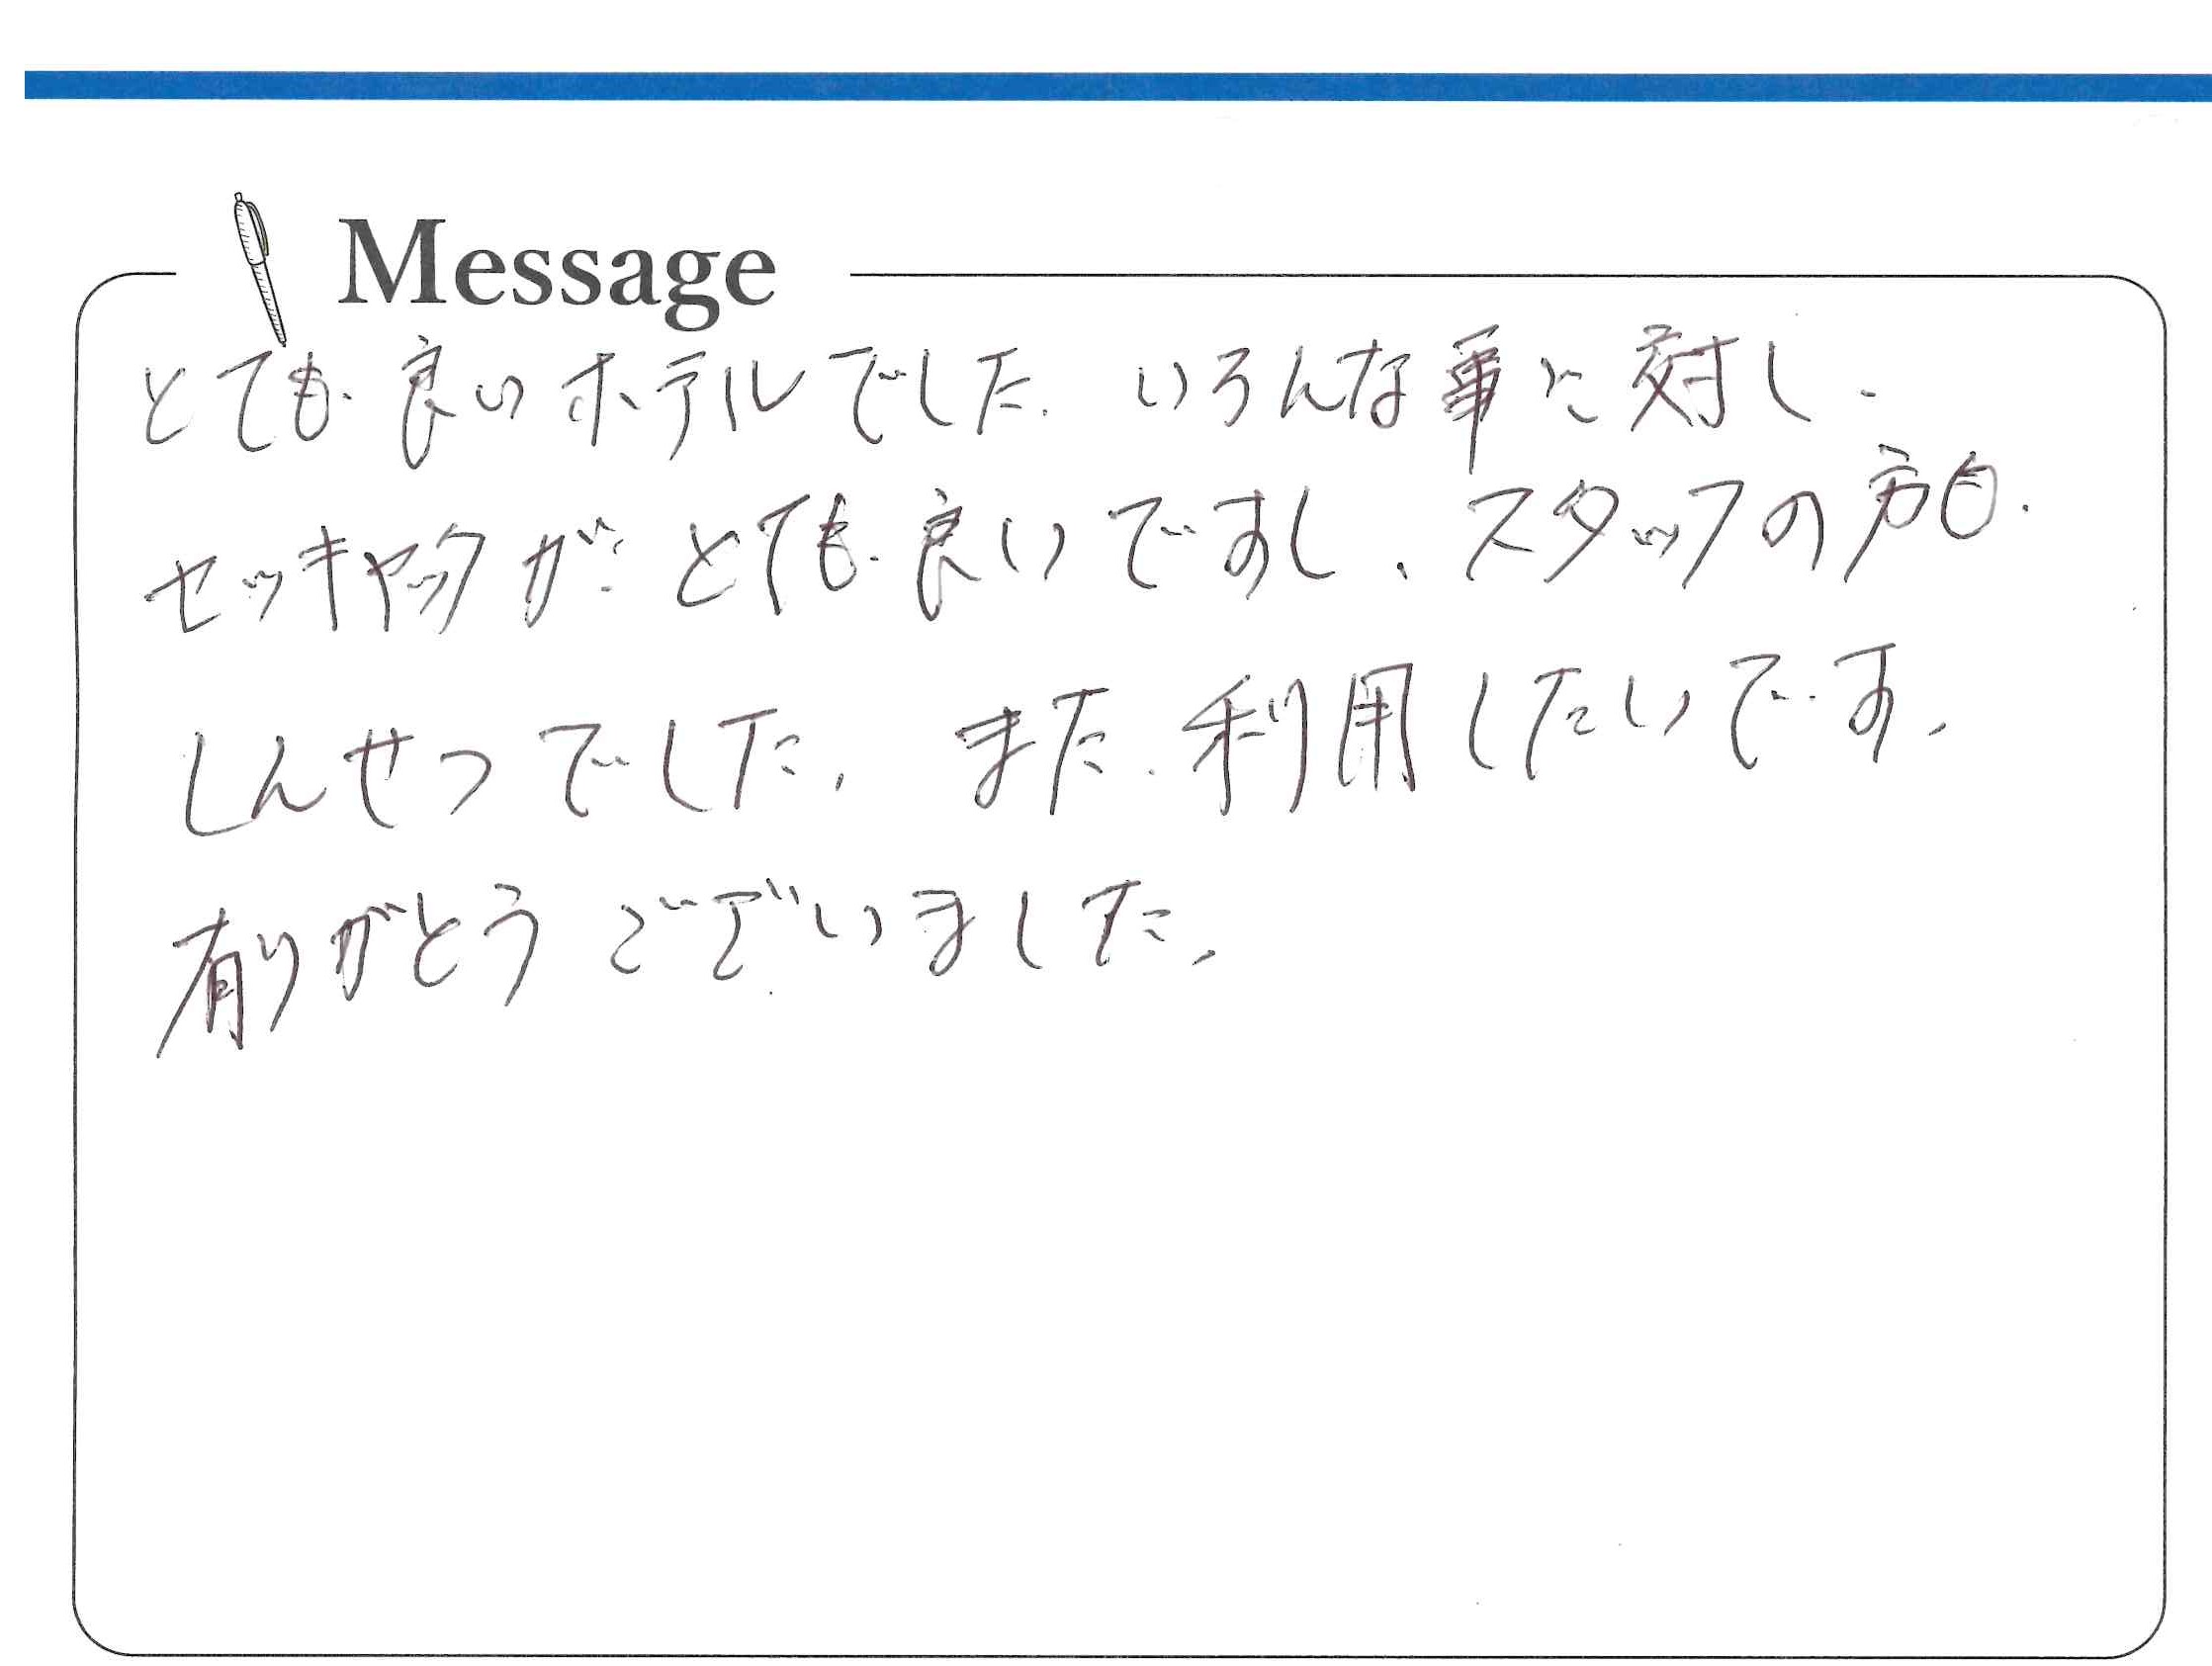 Message
とても良いホテルでした、いろんな事に対し、
セッキャックが、とても良いですし、スタッフの方も、
しんせつでした、また、利用したいです、
有りがとうございました、